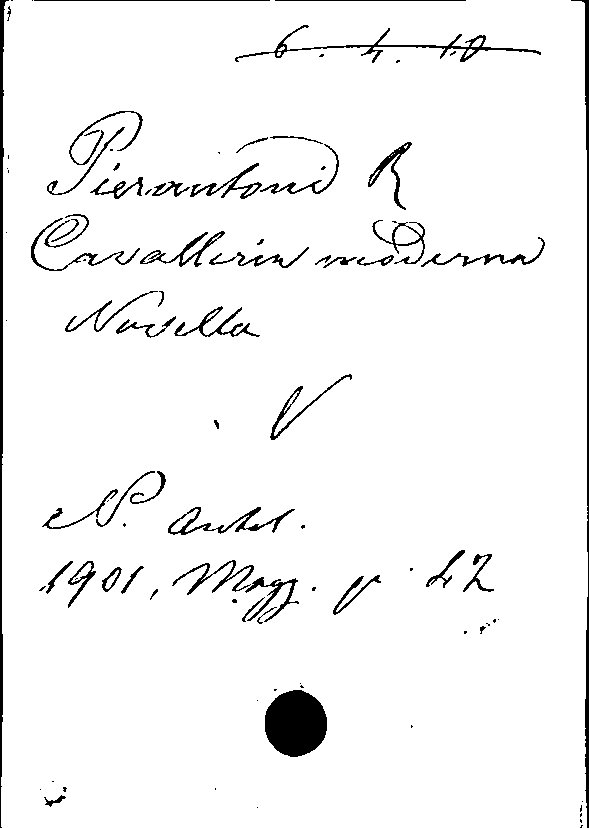 6. 4. 10
Pierantoni R
Cavalleria moderna
Novella
V
N. Antol.
1901, Magg. p. 42